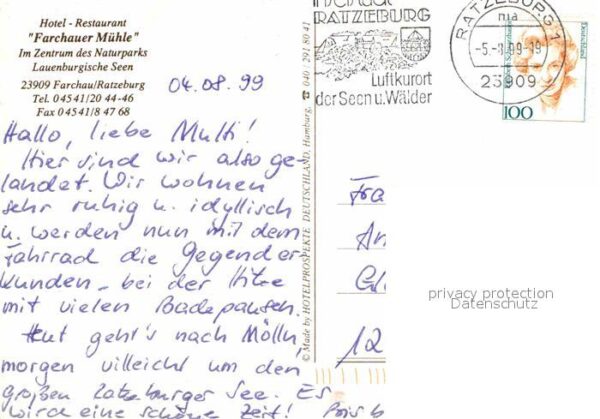 Hotel - Restaurant
"Farchauer Mühle"
Im Zentrum des Naturparks
Lauenburgische Seen
23909 Farchau/Ratzeburg
Tel. 04541/20 44-46
Fax 04541/8 47 68
04.08.99
Hallo, liebe Multi!
Hier sind wir also ge-
landet. Wir wohnen
sehr ruhig u. idyllisch
u. werden nun mit dem
Fahrrad die Gegend er
kunden - bei der Hitze
mit vielen Badepausen.
Heut geht's nach Mölln,
morgen villeicht um den
großen Ratzeburger See. Es
wird eine schöne Zeit! Bis
© Made by HOTELPROSPEKTE DEUTSCHLAND, Hamburg, ☎ 040 / 291 80 41
RATZEBURG
Luftkurort
der Seen u. Wälder
RATZEBURG 1
-5.-8.99-19
23909
Deutschland
100
Fra
An
12
privacy protection
Datenschutz